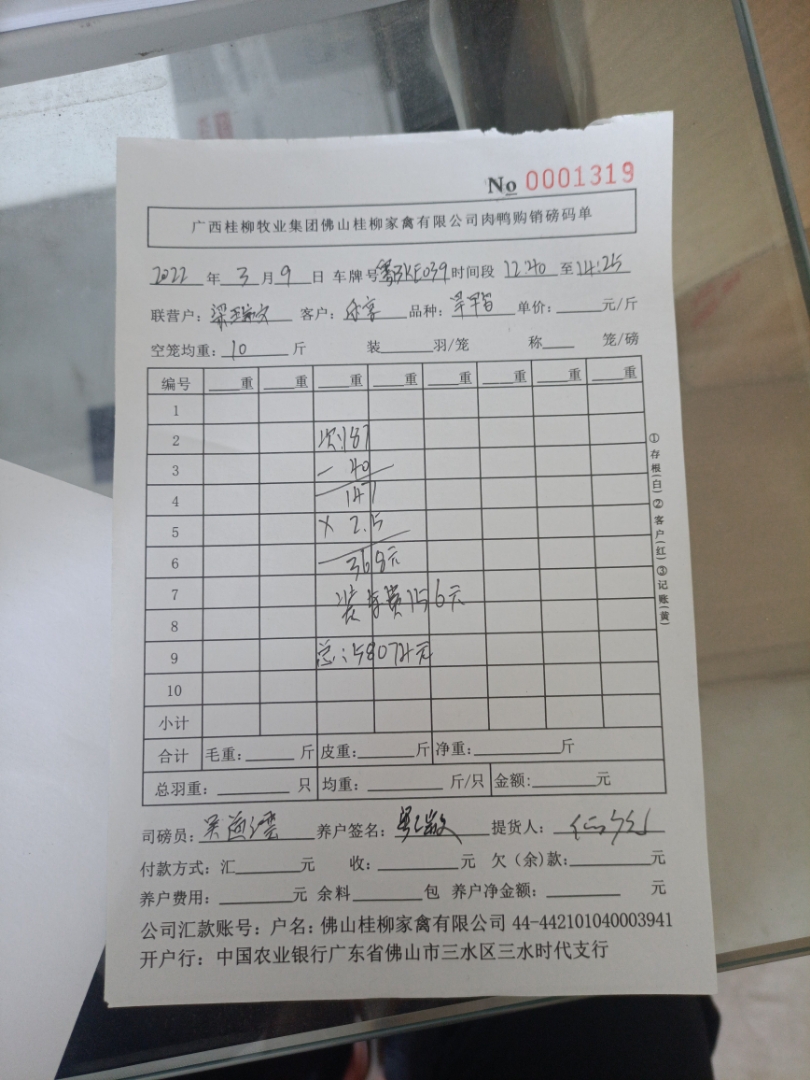 No 0001319
广西桂柳牧业集团佛山桂柳家禽有限公司肉鸭购销磅码单
2022 年 3 月 9 日 车牌号 粤BKE039 时间段 12:40 至 14:25
联营户: 客户: 品种: 单价: 元/斤
空笼均重: 10 斤 装 羽/笼 称 笼/磅
编号 重 重 重 重 重 重 重 重
1
2 次:187
3 - 40
4 147
5 × 2.5
6 368元
7 装车费156元
8
9 总:58074元
10
小计
合计 毛重: 斤 皮重: 斤 净重: 斤
总羽重: 只 均重: 斤/只 金额: 元
司磅员: 养户签名: 提货人:
付款方式: 汇 元 收: 元 欠(余)款: 元
养户费用: 元 余料 包 养户净金额: 元
公司汇款账号: 户名: 佛山桂柳家禽有限公司 44-442101040003941
开户行: 中国农业银行广东省佛山市三水区三水时代支行
①存根(白)②客户(红)③记账(黄)